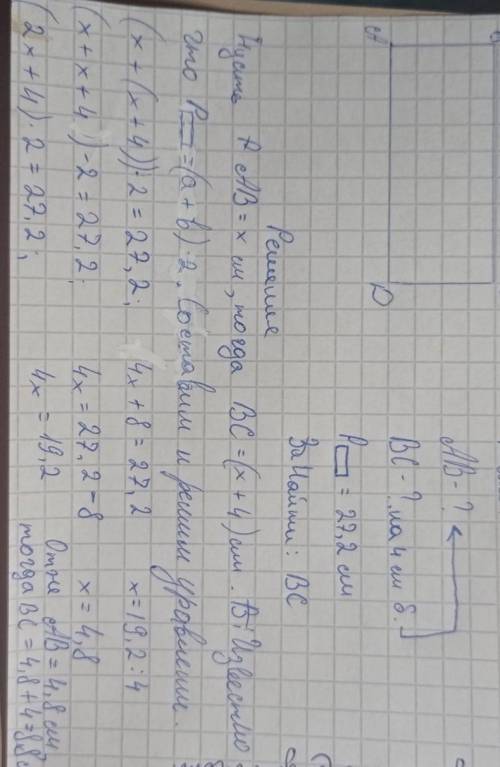 A
D
AB - ?
BC - ? на 4 см б.
P▭ = 27,2 см
Найти: BC
Решение
Пусть AB = x см, тогда BC = (x + 4) см. Известно
что P▭ = (a + b) · 2. Составим и решим уравнение.
(x + (x + 4)) · 2 = 27,2; 4x + 8 = 27,2 x = 19,2 : 4
(x + x + 4) · 2 = 27,2; 4x = 27,2 - 8 x = 4,8
(2x + 4) · 2 = 27,2; 4x = 19,2 AB = 4,8 см
тогда BC = 4,8 + 4 = 8,8